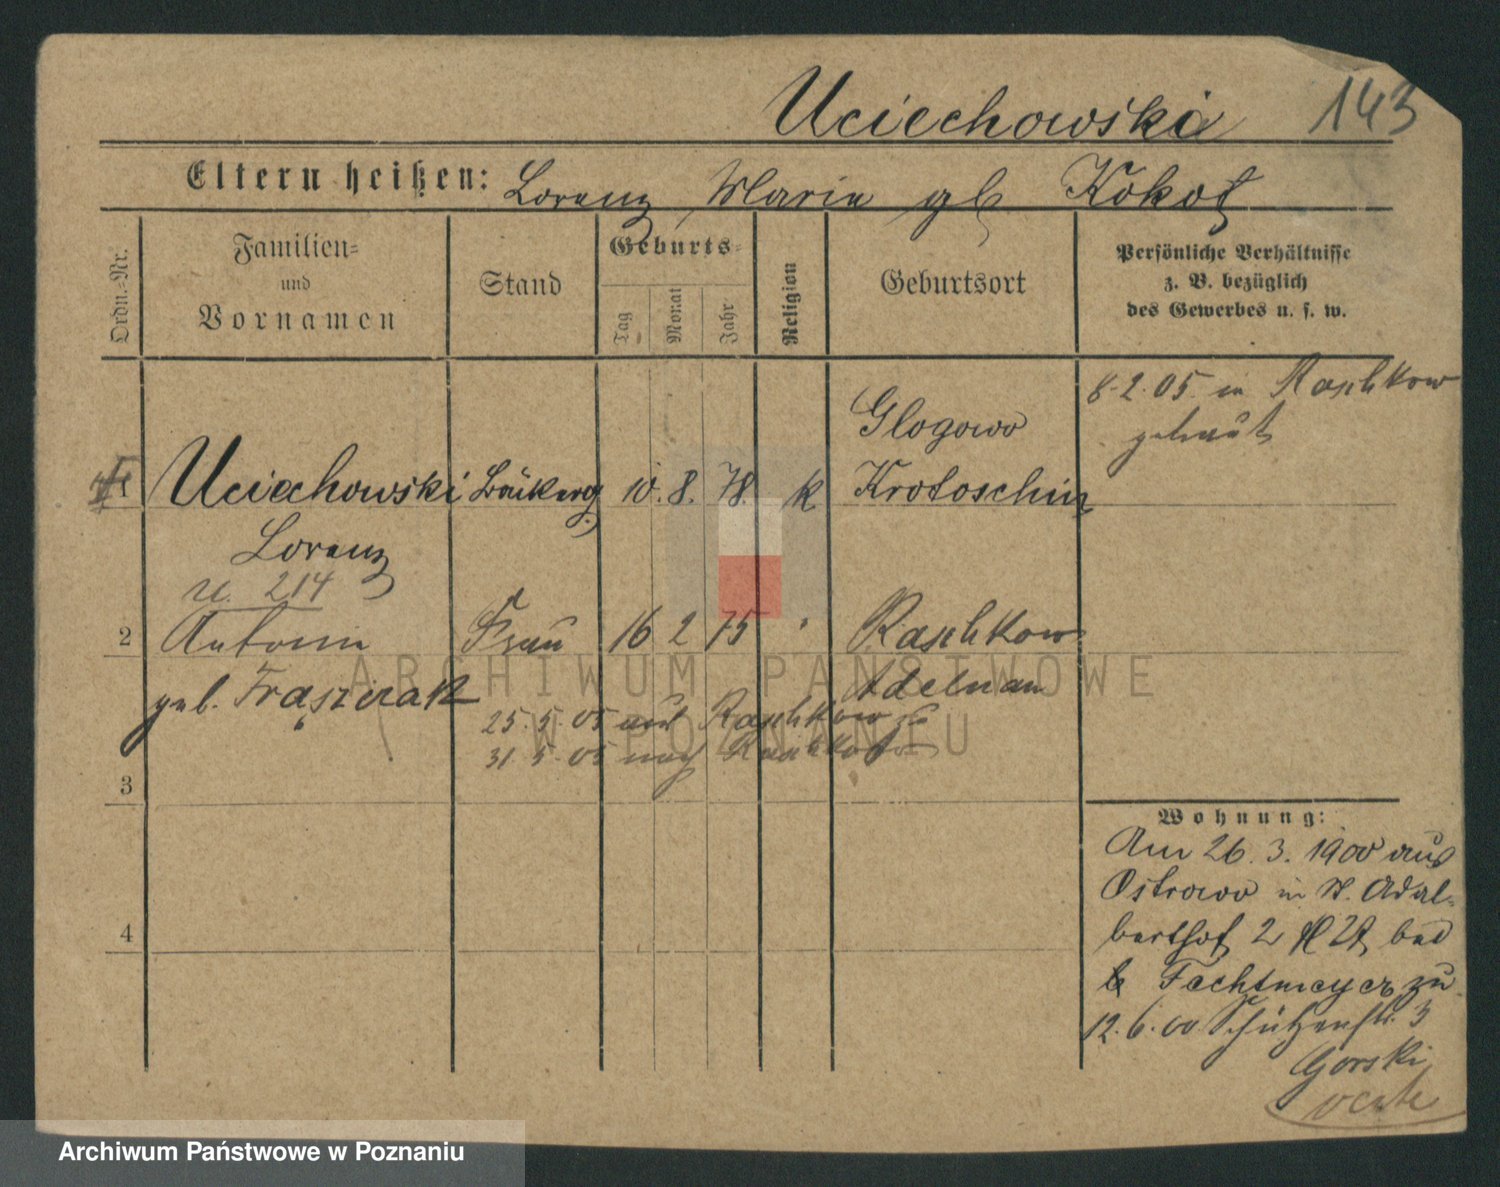 Uciechowski 143
Eltern heißen: Lorenz Maria gb Kokot
Ordn.-Nr.
Familien-
und
Vornamen
Stand
Geburts-
Tag
Monat
Jahr
Religion
Geburtsort
Persönliche Verhältnisse
z. B. bezüglich
des Gewerbes u. s. w.
8.2.05. in Raschkow
getraut
Glogowo
1 Uciechowski Bäckerg. 10. 8. 78. k Krotoschin
Lorenz
u. 214
2 Antonin Frau 16 2 75 " Raschkow
Adelnau
geb. Frąszczak
25.5.05 aus Raschkow zu
31.5.05 nach
3
4
Wohnung:
Am 26.3.1900 aus
Ostrowo in St. Adal-
berthof 2 bei
Fechtmeyer zu
12.6.00 Schützenstr. 3
Gorski
ARCHIWUM PAŃSTWOWE
W POZNANIU
Archiwum Państwowe w Poznaniu